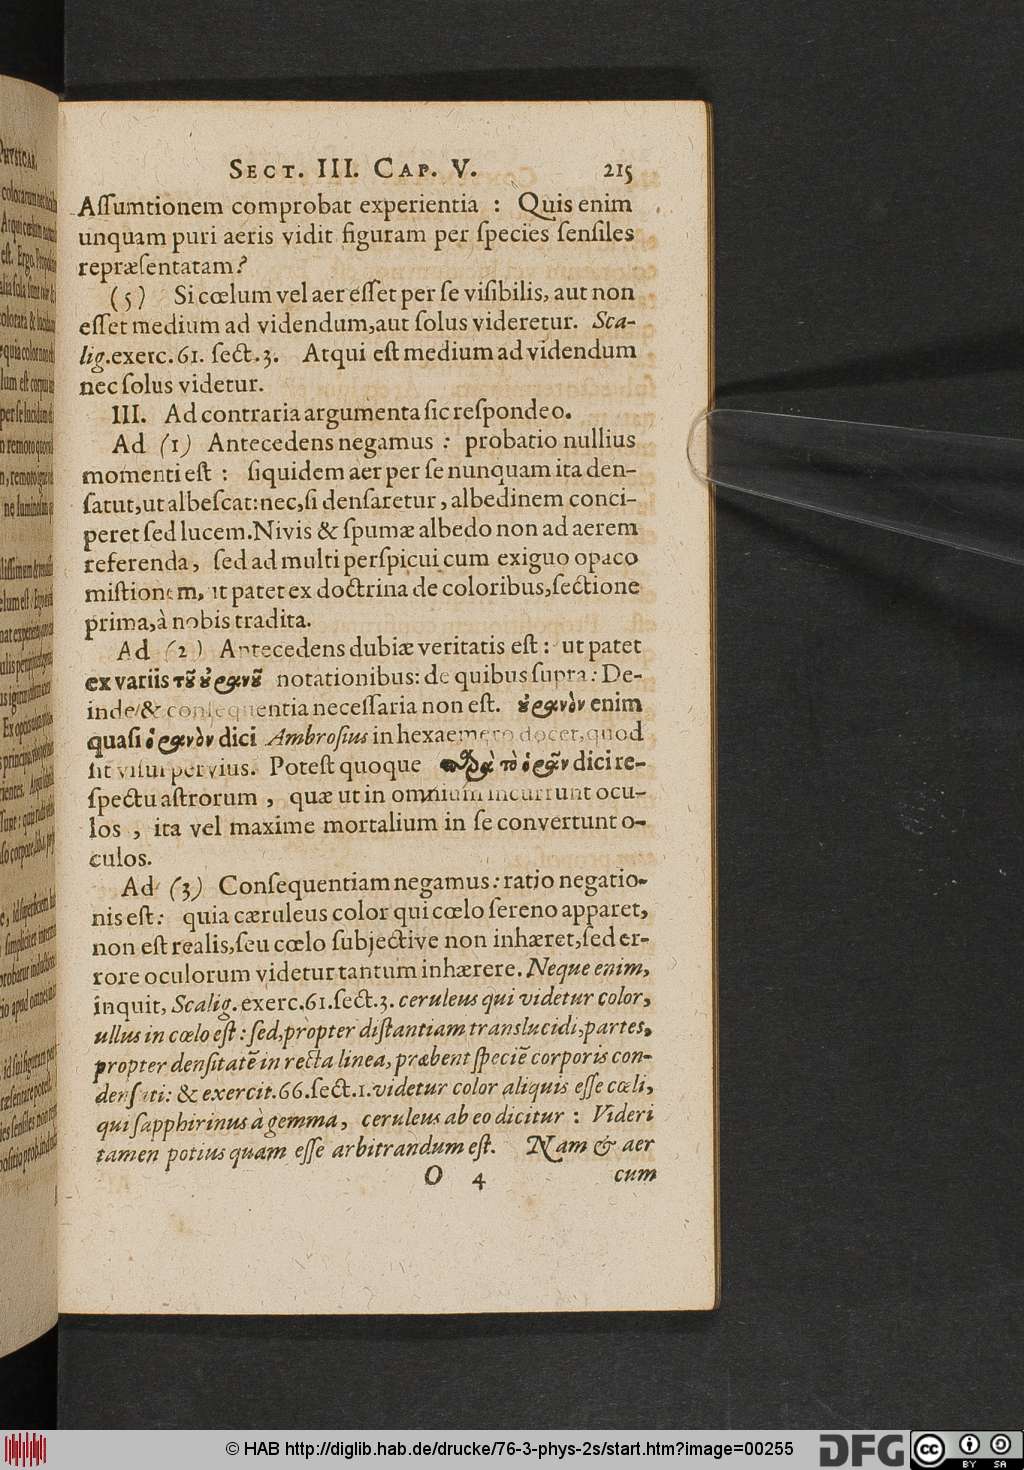 SECT. III. CAP. V. 215
Aſſumtionem comprobat experientia : Quis enim
unquam puri aeris vidit figuram per ſpecies ſenſiles
repræſentatam?
(5) Si cœlum vel aer eſſet per ſe viſibilis, aut non
eſſet medium ad videndum, aut ſolus videretur. Sca-
lig. exerc. 61. ſect. 3. Atqui eſt medium ad videndum
nec ſolus videtur.
III. Ad contraria argumenta ſic reſpondeo.
Ad (1) Antecedens negamus : probatio nullius
momenti eſt : ſiquidem aer per ſe nunquam ita den-
ſatut, ut albeſcat: nec, ſi denſaretur, albedinem conci-
peret ſed lucem. Nivis & ſpumæ albedo non ad aerem
referenda, ſed ad multi perſpicui cum exiguo opaco
miſtionem, ut patet ex doctrina de coloribus, ſectione
prima, à nobis tradita.
Ad (2) Antecedens dubiæ veritatis eſt : ut patet
ex variis τȣ͂ ȣ̓ρανȣ͂ notationibus: de quibus ſupra: De-
inde & conſequentia neceſſaria non eſt. ȣ̓ρανὸν enim
quaſi ὁρανὸν dici Ambroſius in hexaemero docet, quod
ſit viſui pervius. Poteſt quoque παρὰ τὸ ὁρᾶν dici re-
ſpectu aſtrorum, quæ ut in omnium incurrunt ocu-
los, ita vel maxime mortalium in ſe convertunt o-
culos.
Ad (3) Conſequentiam negamus: ratio negatio-
nis eſt: quia cæruleus color qui cœlo ſereno apparet,
non eſt realis, ſeu cœlo ſubjective non inhæret, ſed er-
rore oculorum videtur tantum inhærere. Neque enim,
inquit, Scalig. exerc. 61. ſect. 3. ceruleus qui videtur color,
ullus in cœlo eſt: ſed, propter diſtantiam translucidi, partes,
propter denſitatē in recta linea, præbent ſpeciē corporis con-
denſati: & exercit. 66. ſect. 1. videtur color aliquis eſſe cœli,
qui ſapphirinus à gemma, ceruleus ab eo dicitur : Videri
tamen potius quam eſſe arbitrandum eſt. Nam & aer
O 4 cum
© HAB http://diglib.hab.de/drucke/76-3-phys-2s/start.htm?image=00255
DFG
cc BY SA